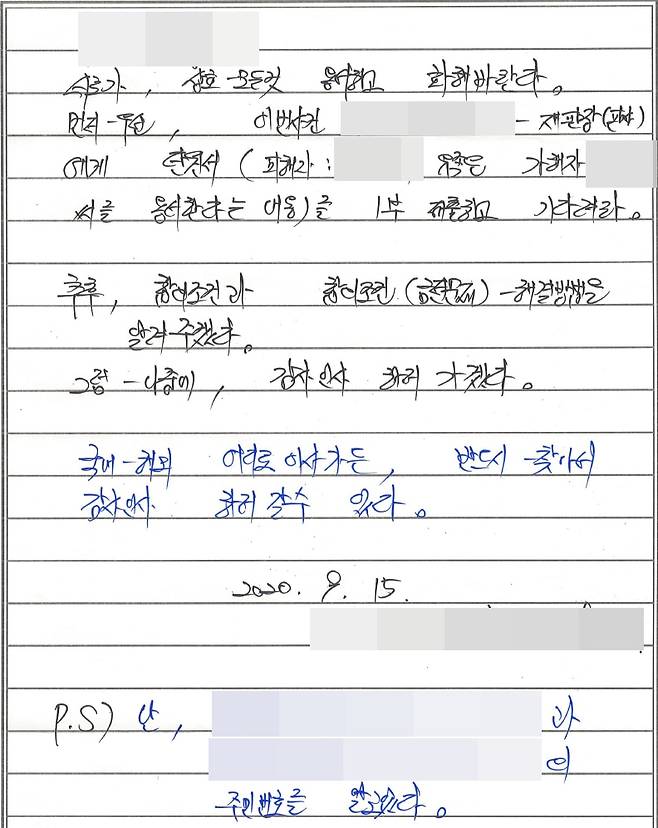 서로가, 상호-모든것 용서하고 화해바란다.
먼저-우선, 이번사건 - 재판장(판사)
에게 탄원서 (피해자: 유족은 가해자
씨를 용서한다는 내용)를 1부 제출하고 기다려라.
추후, 합의조건과 합의조건(금전문제)-해결방법을
알려주겠다.
그럼-나중에, 감사인사 하러 가겠다.
국내-해외 어디로 이사가든, 반드시-찾아서
감사인사 하러 갈수 있다.
2020. 9. 15.
P.S) 난, 과
의
주민번호를 알고있다.